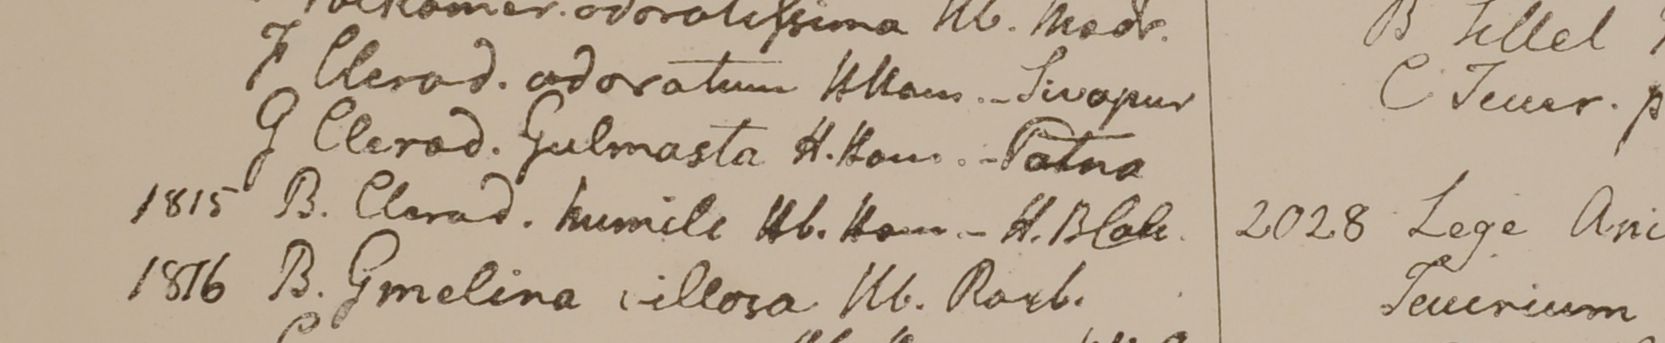 Volkamer. odoratissima Hb. Madr.
F Clerod. odoratum HHam. - Sivapur
G Clerod. Gulmasta H. Ham. - Patna
1815 B. Clerod. humile Hb. Ham - H. B Calc.
1816 B. Gmelina villosa Hb. Roxb.
B
C Teucr. p
2028 Lege Ani
Teucrium